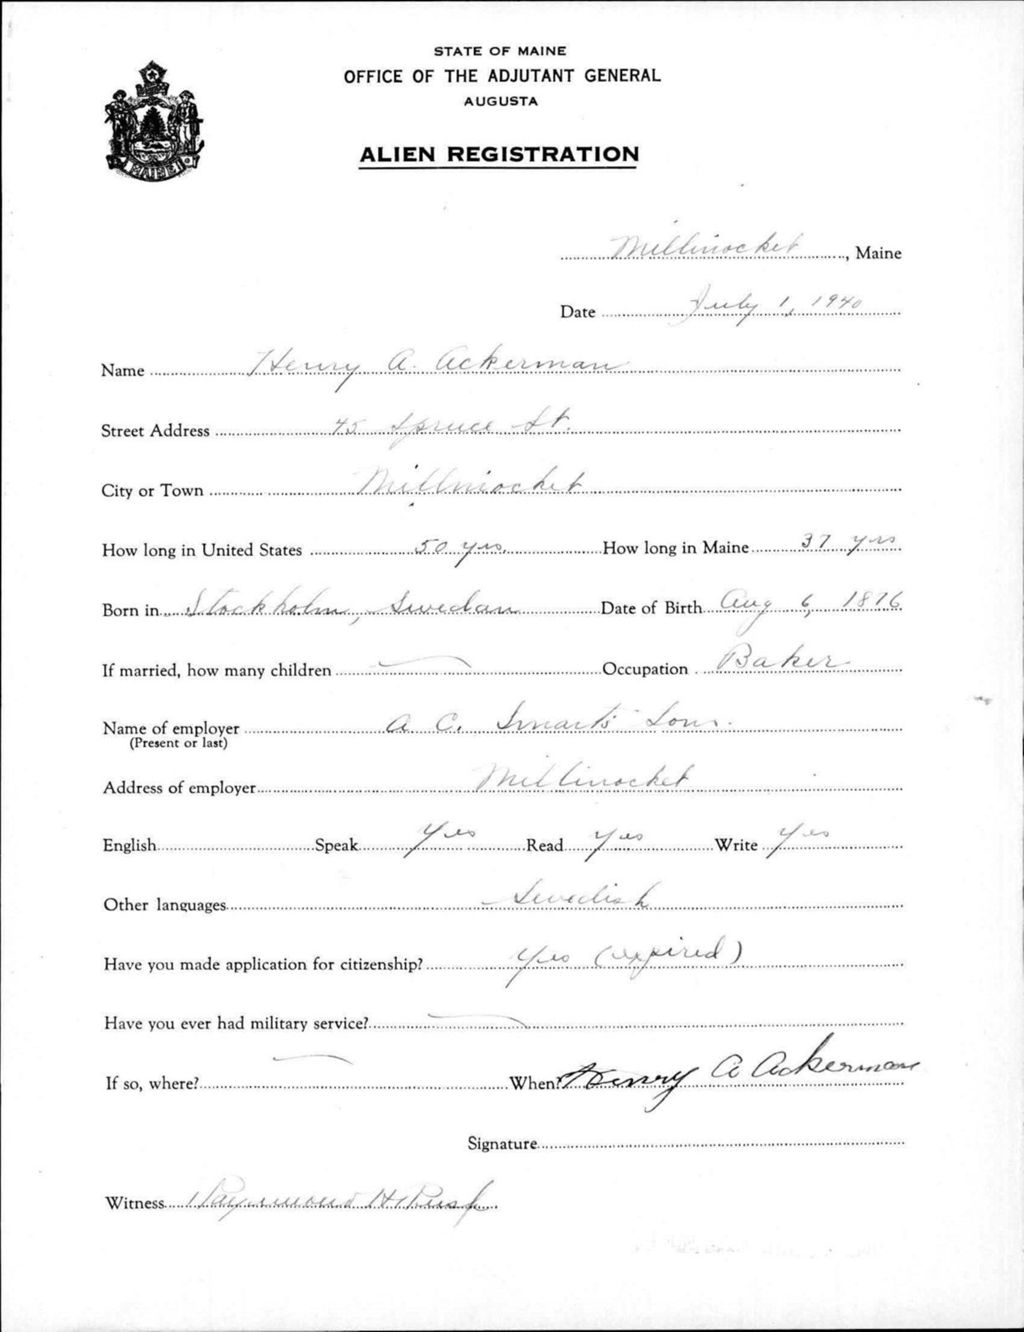 STATE OF MAINE
OFFICE OF THE ADJUTANT GENERAL
AUGUSTA
ALIEN REGISTRATION
MAINE
Millinocket, Maine
Date July 1, 1940
Name Henry A. Ackerman
Street Address 45 Spruce St.
City or Town Millinocket
How long in United States 50 yrs. How long in Maine 37 yrs
Born in Stockholm, Swedan Date of Birth Aug 6, 1876
If married, how many children — Occupation Baker
Name of employer A. C. Smart's Sons.
(Present or last)
Address of employer Millinocket
English Speak Yes Read Yes Write Yes
Other languages Swedish
Have you made application for citizenship? Yes (expired)
Have you ever had military service? —
If so, where? — When? Henry A Ackerman
Signature
Witness Raymond H